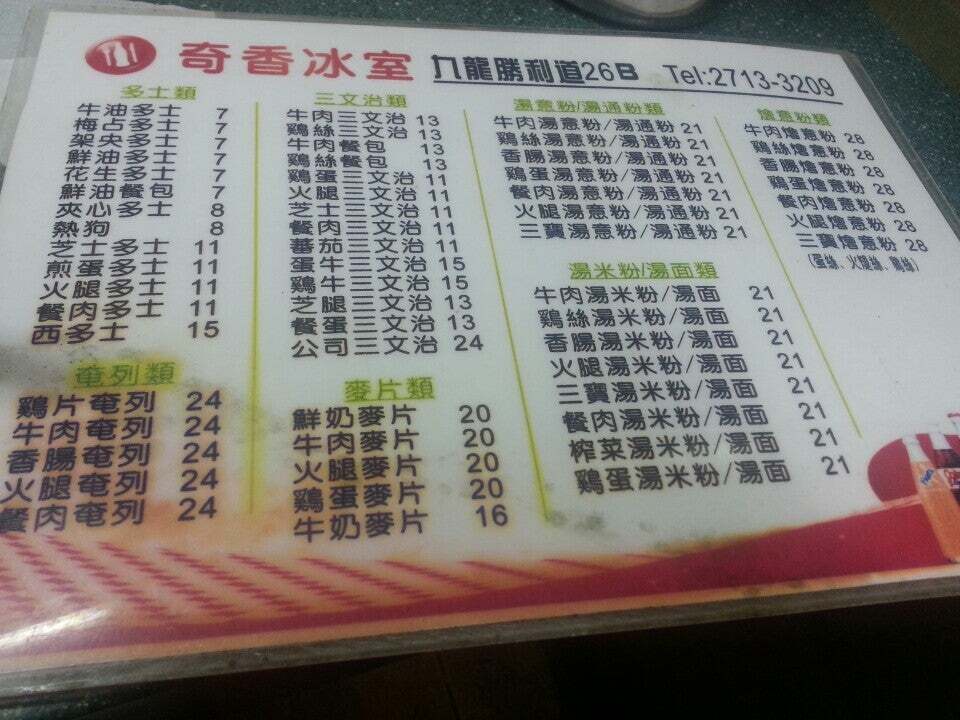 奇香冰室 九龍勝利道26B Tel:2713-3209
多士類
牛油多士 7
梅占多士 7
架央多士 7
鮮油多士 7
花生多士 7
鮮油餐包 7
夾心多士 8
熱狗 8
芝士多士 11
煎蛋多士 11
火腿多士 11
餐肉多士 11
西多士 15
奄列類
鷄片奄列 24
牛肉奄列 24
香腸奄列 24
火腿奄列 24
餐肉奄列 24
三文治類
牛肉三文治 13
鷄絲三文治 13
牛肉餐包 13
鷄絲餐包 13
鷄蛋三文治 11
火腿三文治 11
芝士三文治 11
餐肉三文治 11
蕃茄三文治 11
蛋牛三文治 15
鷄牛三文治 15
芝腿三文治 13
餐蛋三文治 13
公司三文治 24
麥片類
鮮奶麥片 20
牛肉麥片 20
火腿麥片 20
鷄蛋麥片 20
牛奶麥片 16
湯意粉/湯通粉類
牛肉湯意粉/湯通粉 21
鷄絲湯意粉/湯通粉 21
香腸湯意粉/湯通粉 21
鷄蛋湯意粉/湯通粉 21
餐肉湯意粉/湯通粉 21
火腿湯意粉/湯通粉 21
三寶湯意粉/湯通粉 21
湯米粉/湯面類
牛肉湯米粉/湯面 21
鷄絲湯米粉/湯面 21
香腸湯米粉/湯面 21
火腿湯米粉/湯面 21
三寶湯米粉/湯面 21
餐肉湯米粉/湯面 21
榨菜湯米粉/湯面 21
鷄蛋湯米粉/湯面 21
燴意粉類
牛肉燴意粉 28
鷄絲燴意粉 28
香腸燴意粉 28
鷄蛋燴意粉 28
餐肉燴意粉 28
火腿燴意粉 28
三寶燴意粉 28
(蛋絲、火腿絲、鷄絲)